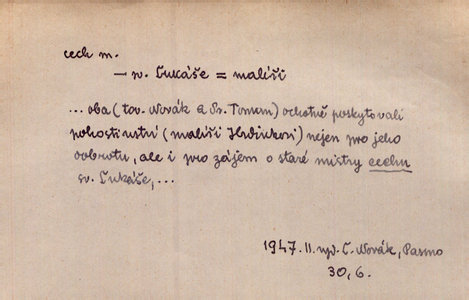 cech m.
— sv. Lukáše = malíři
... oba (tov. Novák a Sv. Toman) ochotně poskytovali
pohostinství (malíři Hrdličkovi) nejen pro jeho
dobrotu, ale i pro zájem o staré mistry cechu
sv. Lukáše, ...
1947. II. vyd. C. Novák, Pasmo
30, 6.